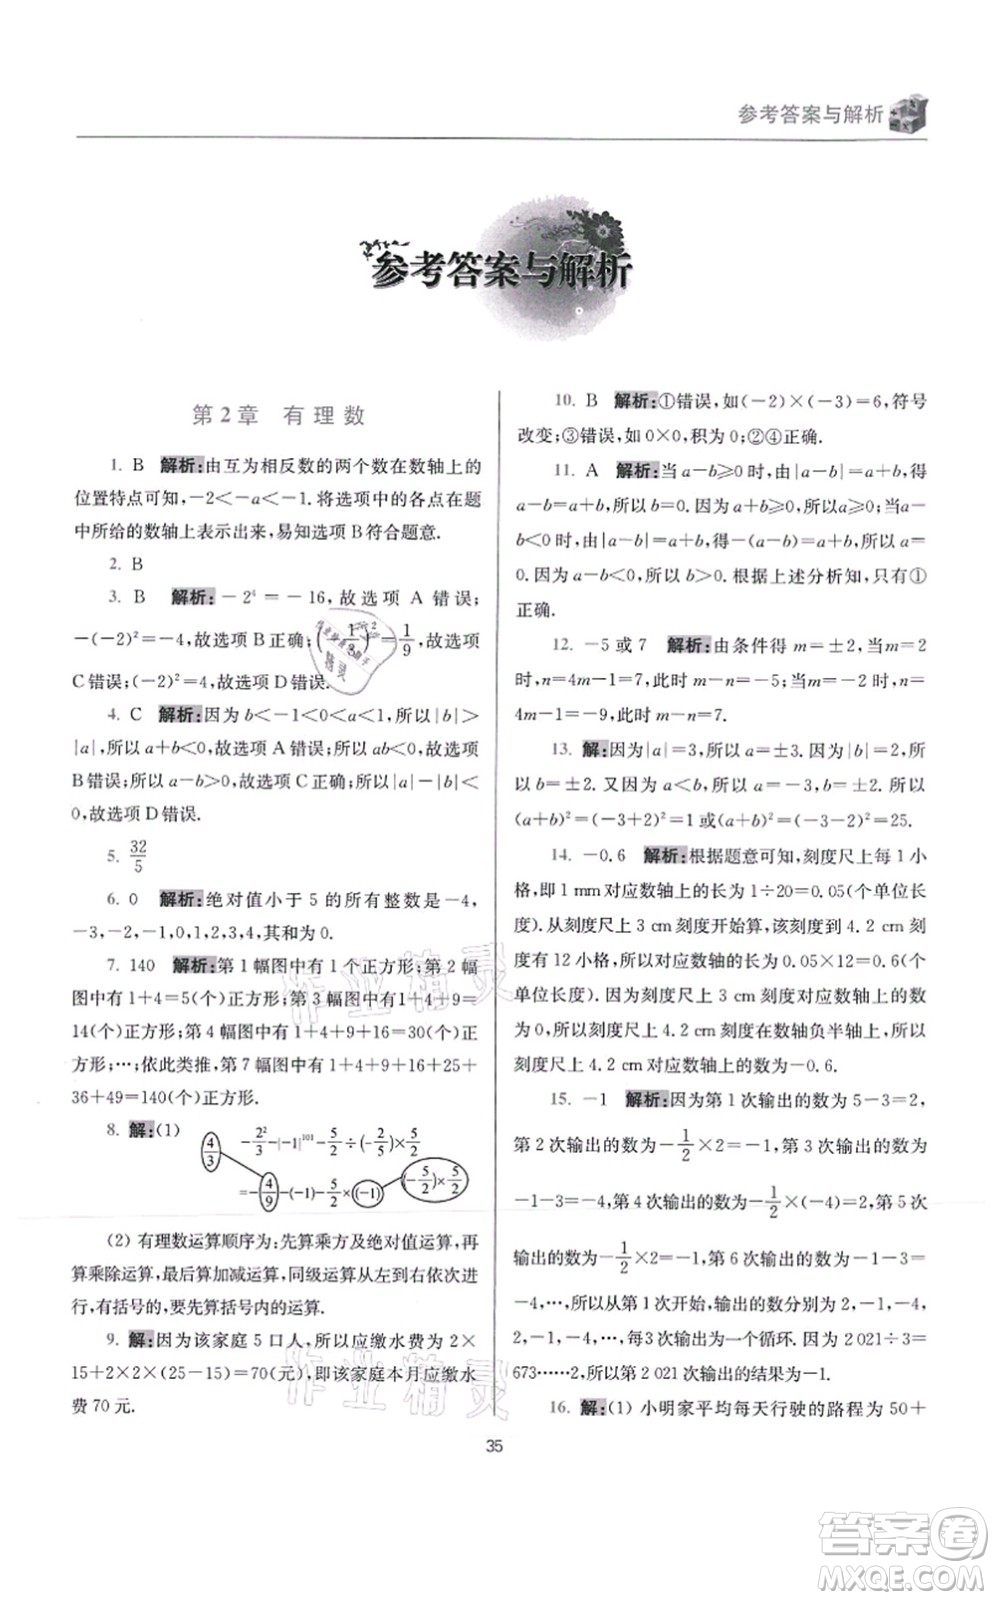 参考答案与解析
参考答案与解析
第2章 有理数
1. B 解析:由互为相反数的两个数在数轴上的
位置特点可知,-2<-a<-1.将选项中的各点在题
中所给的数轴上表示出来,易知选项B符合题意.
2. B
3. B 解析:-2⁴=-16,故选项 A 错误;
-(-2)²=-4,故选项B正确;(-1/3)²=1/9,故选项
C错误;(-2)²=4,故选项D错误.
4. C 解析:因为 b<-1<0<a<1,所以|b|>
|a|,所以a+b<0,故选项A错误;所以ab<0,故选项
B错误;所以a-b>0,故选项C正确;所以|a|-|b|<
0,故选项D错误.
5. 32/5
6. 0 解析:绝对值小于5的所有整数是-4,
-3,-2,-1,0,1,2,3,4,其和为0.
7. 140 解析:第1幅图中有1个正方形;第2幅
图中有1+4=5(个)正方形;第3幅图中有1+4+9=
14(个)正方形;第4幅图中有1+4+9+16=30(个)正
方形;…;依此类推,第7幅图中有1+4+9+16+25+
36+49=140(个)正方形.
8. 解:(1) 4/3 -2²/3-|-1|¹⁰¹-5/2÷(-2/5)×5/2
=-4/9-(-1)-5/2×(-1) (-5/2)×5/2
(2) 有理数运算顺序为:先算乘方及绝对值运算,再
算乘除运算,最后算加减运算,同级运算从左向右依次进
行,有括号的,要先算括号内的运算.
9. 解:因为该家庭5口人,所以应缴水费为2×
15+2×2×(25-15)=70(元),即该家庭本月应缴水
费70元.
10. B 解析:①错误,如(-2)×(-3)=6,符号
改变;③错误,如0×0,积为0;②④正确.
11. A 解析:当a-b≥0时,由|a-b|=a+b,得
a-b=a+b,所以b=0.因为a+b≥0,所以a≥0.当a-
b<0时,由|a-b|=a+b,得-(a-b)=a+b,所以a=
0.因为a-b<0,所以b>0.根据上述分析知,只有①
正确.
12. -5或7 解析:由条件得m=±2,当m=2
时,n=4m-1=7,此时m-n=-5;当m=-2时,n=
4m-1=-9,此时m-n=7.
13. 解:因为|a|=3,所以a=±3.因为|b|=2,所
以b=±2.又因为a<b,所以a=-3,b=±2.所以
(a+b)²=(-3+2)²=1或(a+b)²=(-3-2)²=25.
14. -0.6 解析:根据题意可知,刻度尺上每1小
格,即1 mm对应数轴上的长为1÷20=0.05(个单位长
度).从刻度尺上3 cm刻度开始算,该刻度到4.2 cm刻度
有12小格,所以对应数轴的长度为0.05×12=0.6(个
单位长度).因为刻度尺上3 cm刻度对应数轴上的数
为0,所以刻度尺上4.2 cm刻度在数轴负半轴上,所以
刻度尺上4.2 cm对应数轴上的数为-0.6.
15. -1 解析:因为第1次输出的数为5-3=2,
第2次输出的数为-1/2×2=-1,第3次输出的数为
-1-3=-4,第4次输出的数为-1/2×(-4)=2,第5次
输出的数为-1/2×2=-1,第6次输出的数为-1-3=
-4,…,所以从第1次开始,输出的数分别为2,-1,-4,
2,-1,-4,…,每3次输出为一个循环.因为2 021÷3=
673……2,所以第2 021次输出的结果为-1.
16. 解:(1) 小明家平均每天行驶的路程为50+
35
作业精灵
作业精灵
答案卷
MXQE.COM